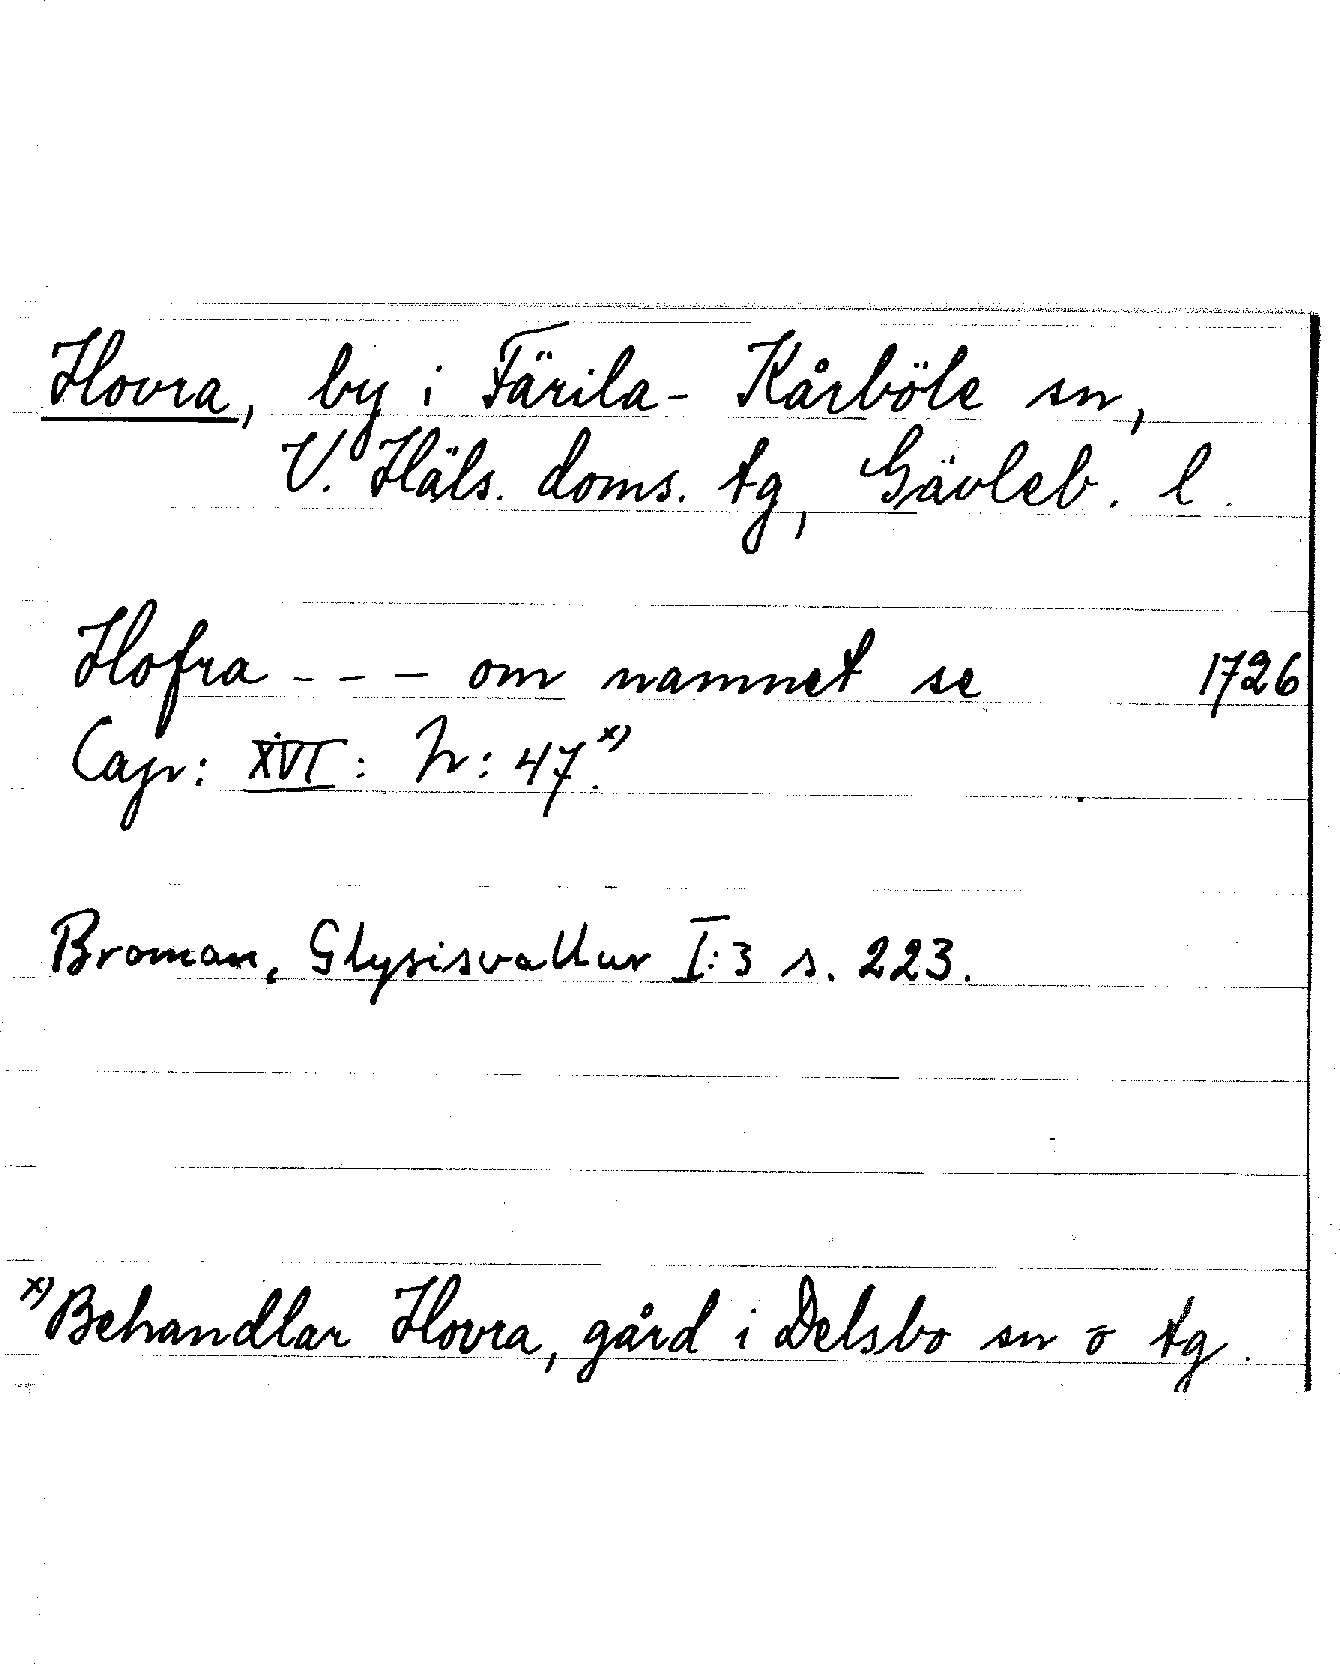 Hovra, by i Färila- Kårböle sn,
V. Häls. doms. tg, Gävleb. l.
Hofra - - - om namnet se 1726
Cap: XVI: N: 47.x)
Broman, Glysisvallur I:3 s. 223.
x) Behandlar Hovra, gård i Delsbo sn o tg.